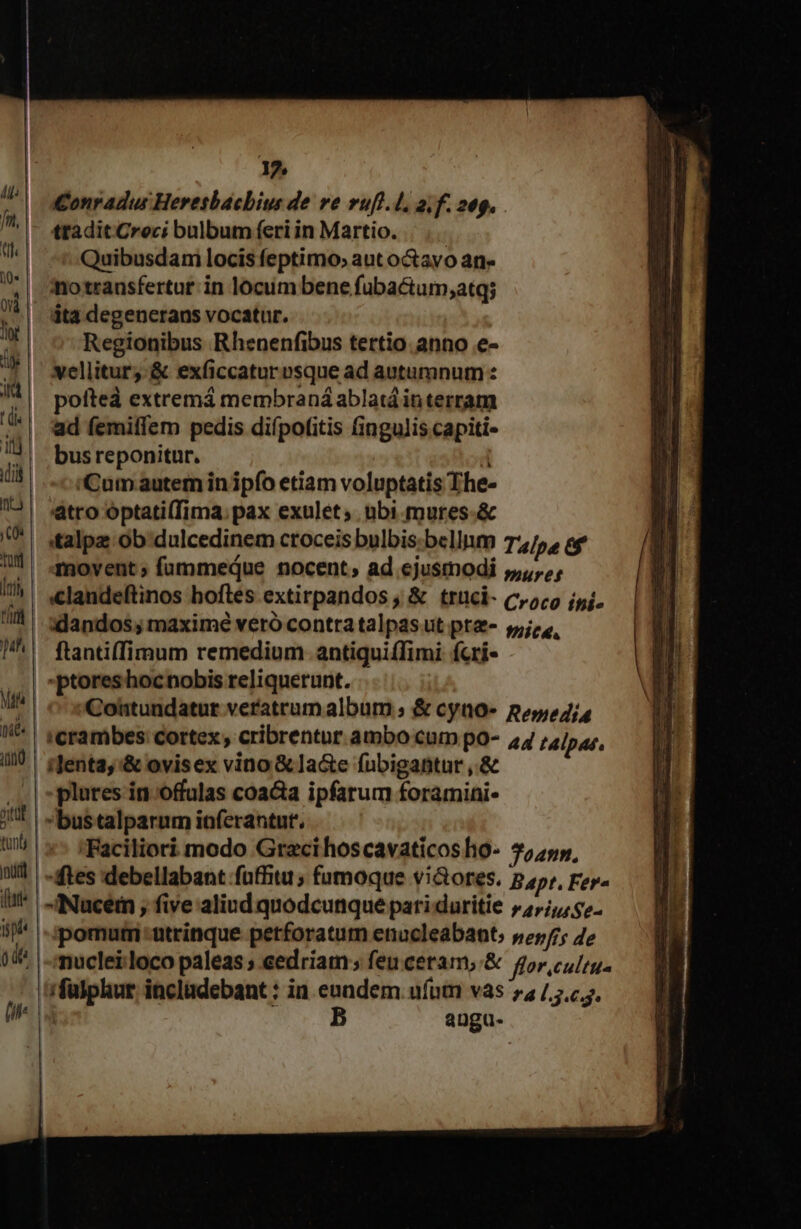 17.
Conradus Heresbachius de re rust. l. 2. f. 269.
tradit Croci bulbum seri in Martio.
Quibusdam locis septimo, aut octavo an-
no transfertur in locum bene subactum, atq;
ita degenerans vocatur.
Regionibus Rhenensibus tertio anno e-
vellitur, & exsiccatur usque ad autumnum:
posteà extremá membraná ablatá in terram
ad semissem pedis dispositis singulis capiti-
bus reponitur.
Cum autem in ipso etiam voluptatis The-
atro optatissima pax exulet, ubi mures &
talpæ ob dulcedinem croceis bulbis bellum
movent, summeque nocent, ad ejusmodi
clandestinos hostes extirpandos, & truci-
dandos, maximè verò contra talpas ut præ-
stantissimum remedium antiquissimi scri-
ptores hoc nobis reliquerunt.
Contundatur veratrum album, & cyno-
crambes cortex, cribrentur ambo cum po-
lenta, & ovis ex vino & lacte subigantur, &
plures in offulas coacta ipsarum foramini-
bus talparum inferantur.
Faciliori modo Græci hos cavaticos ho-
stes debellabant suffitu, fumoque victores.
Nucem, sive aliud quodcunque pari duritie
pomum utrinque perforatum enucleabant,
nuclei loco paleas, cedriam, seu ceram, &
sulphur includebant: in eundem usum vas
B angu-
Talpa &
mures
Croco ini-
mica.
Remedia
ad talpas.
Joann.
Bapt. Fer-
rarius Se-
nensis de
flor. cultu-
ra l. 3. c. 3.